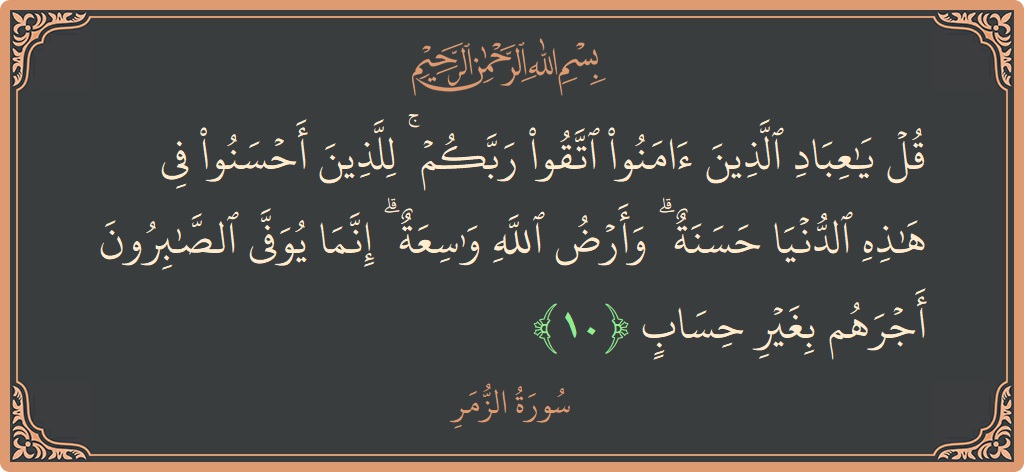 بِسْمِ اللهِ الرَّحْمٰنِ الرَّحِيْمِ
قُلْ يَـٰعِبَادِ ٱلَّذِينَ ءَامَنُوا۟ ٱتَّقُوا۟ رَبَّكُمْ ۚ لِلَّذِينَ أَحْسَنُوا۟ فِى
هَـٰذِهِ ٱلدُّنْيَا حَسَنَةٌ ۗ وَأَرْضُ ٱللَّهِ وَٰسِعَةٌ ۗ إِنَّمَا يُوَفَّى ٱلصَّـٰبِرُونَ
أَجْرَهُم بِغَيْرِ حِسَابٍ ﴿١٠﴾
سُورَةُ الزُّمَرِ